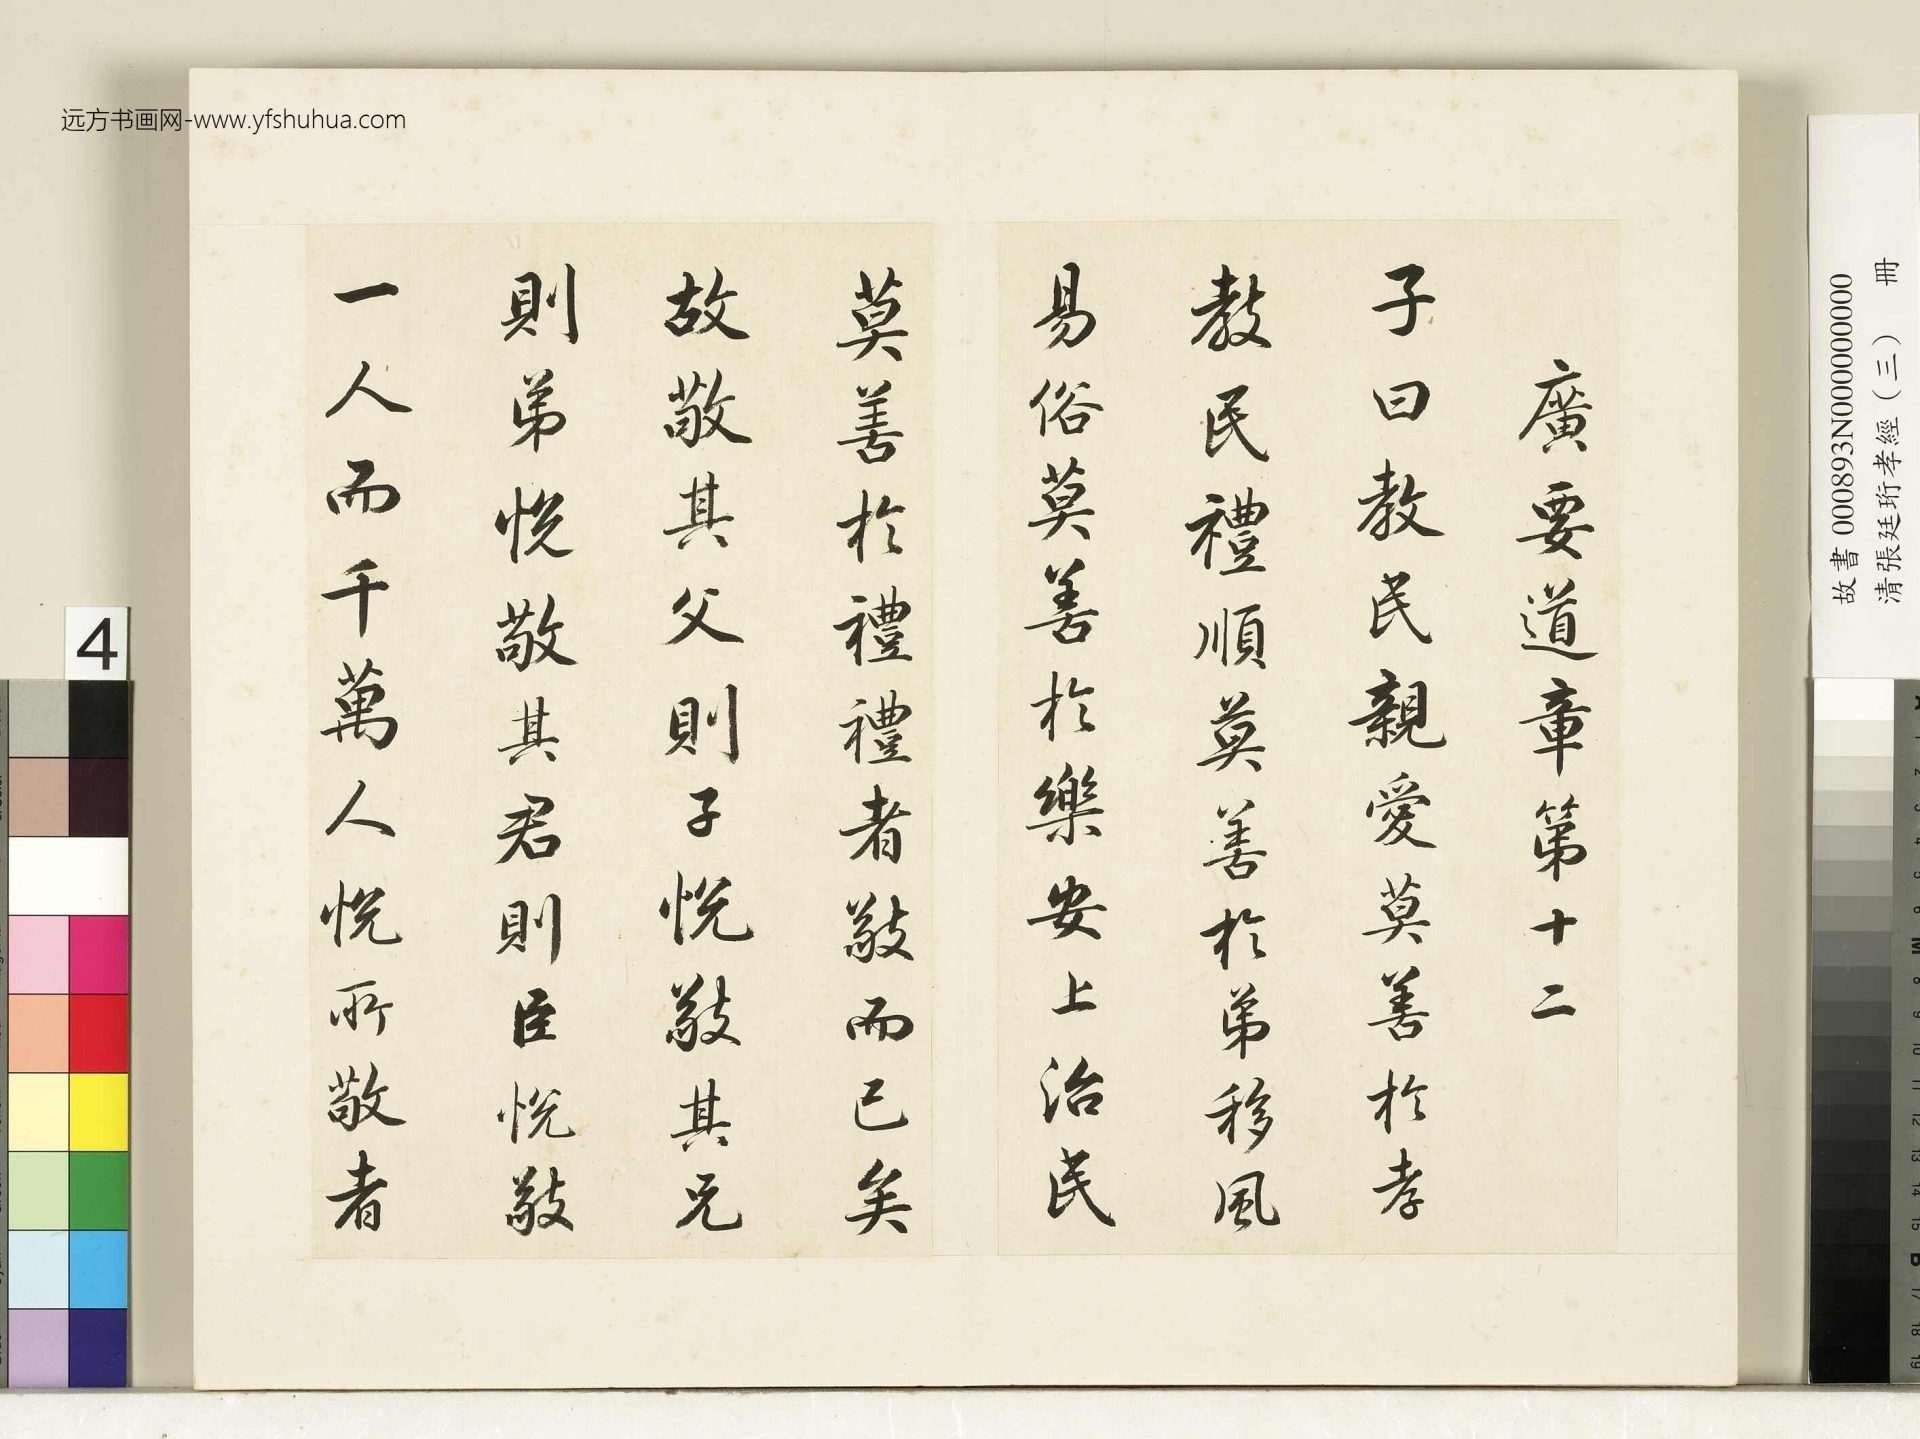 廣要道章第十二
子曰教民親愛莫善於孝
教民禮順莫善於弟移風
易俗莫善於樂安上治民
莫善於禮禮者敬而已矣
故敬其父則子悅敬其兄
則弟悅敬其君則臣悅敬
一人而千萬人悅所敬者
远方书画网-www.yfshuhua.com
故書 000893N000000000
清張廷珩孝經（三） 冊
4